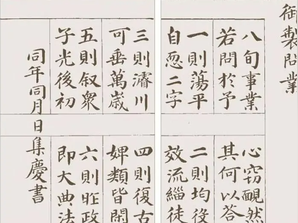 御製問業
八旬事業 心竊靦然
若問於予 其何以答
一則蕩平 二則均役
自恧二字 效流緇徒
三則濬川 四則復古
可垂萬歲 婢類皆閒
五則叙衆 六則昨政
子光後初 即大典法
同年同月日集慶書